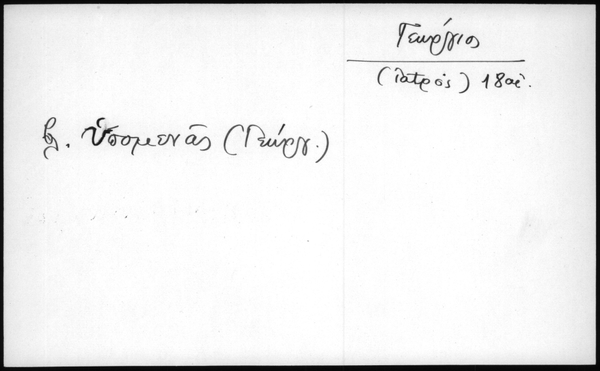 Γεώργιος
(ἰατρός) 18 αἰ.
βλ. Ὑπομενᾶς (Γεώργ.)